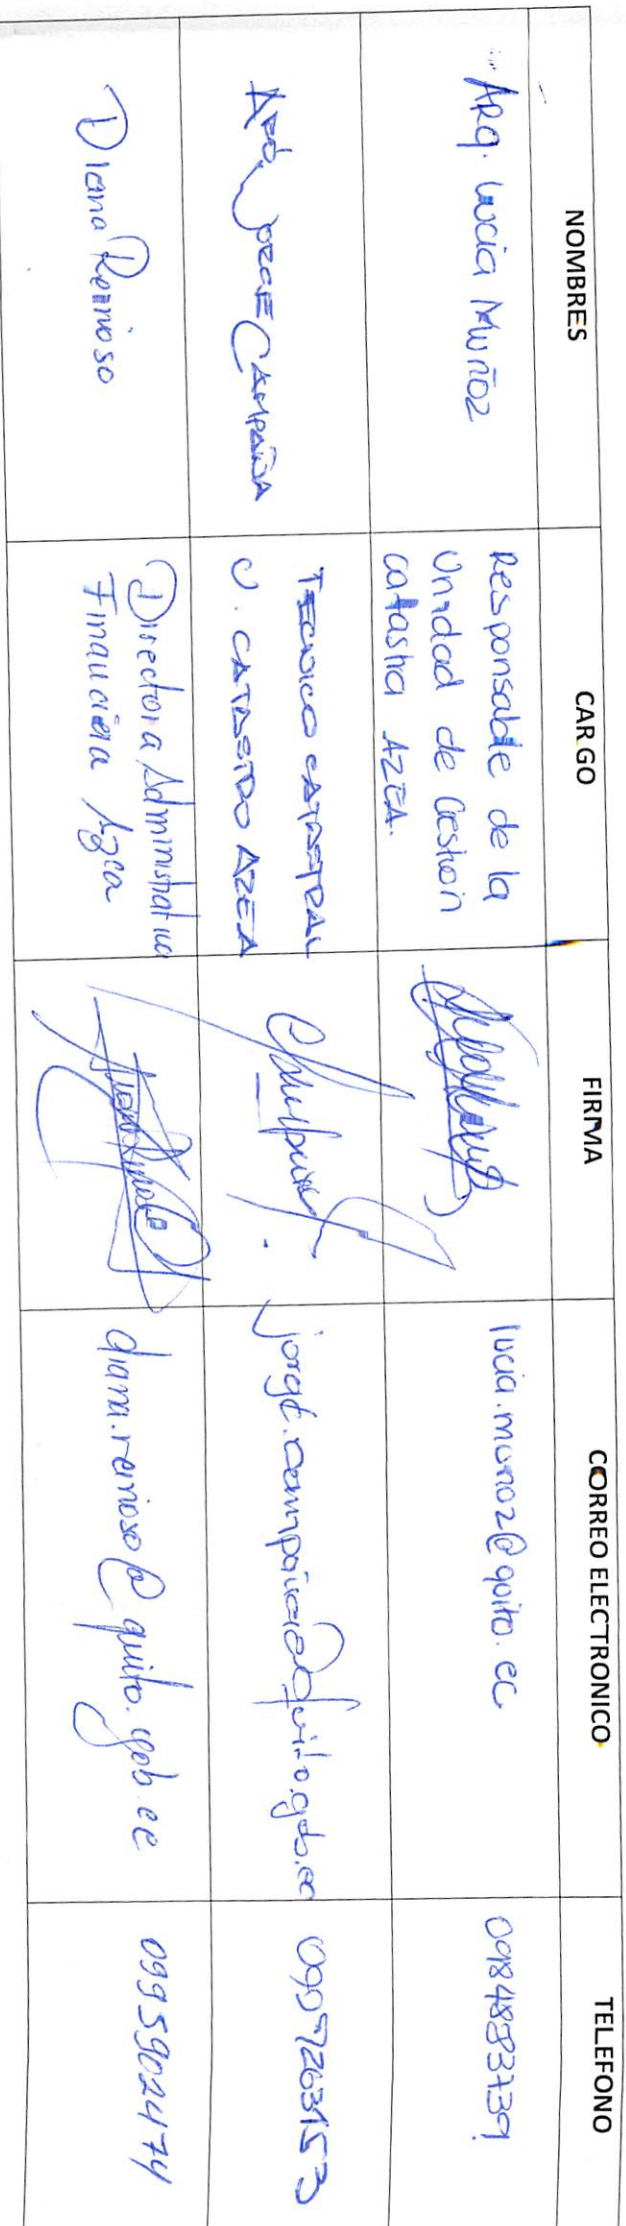 NOMBRES CARGO FIRMA CORREO ELECTRONICO TELEFONO
Arq. Lucia Muñoz
Responsable de la
Unidad de Gestion
catastral AZEA.
lucia.munoz@quito.ec
0984893739
JORGE CAMPAÑA
TECNICO CATASTRAL
U. CATASTRO AZEA
jorge.campana@quito.gob.ec
0997263153
Diana Reinoso
Directora Administrativa
Financiera Azea
diana.reinoso@quito.gob.ec
0995902474